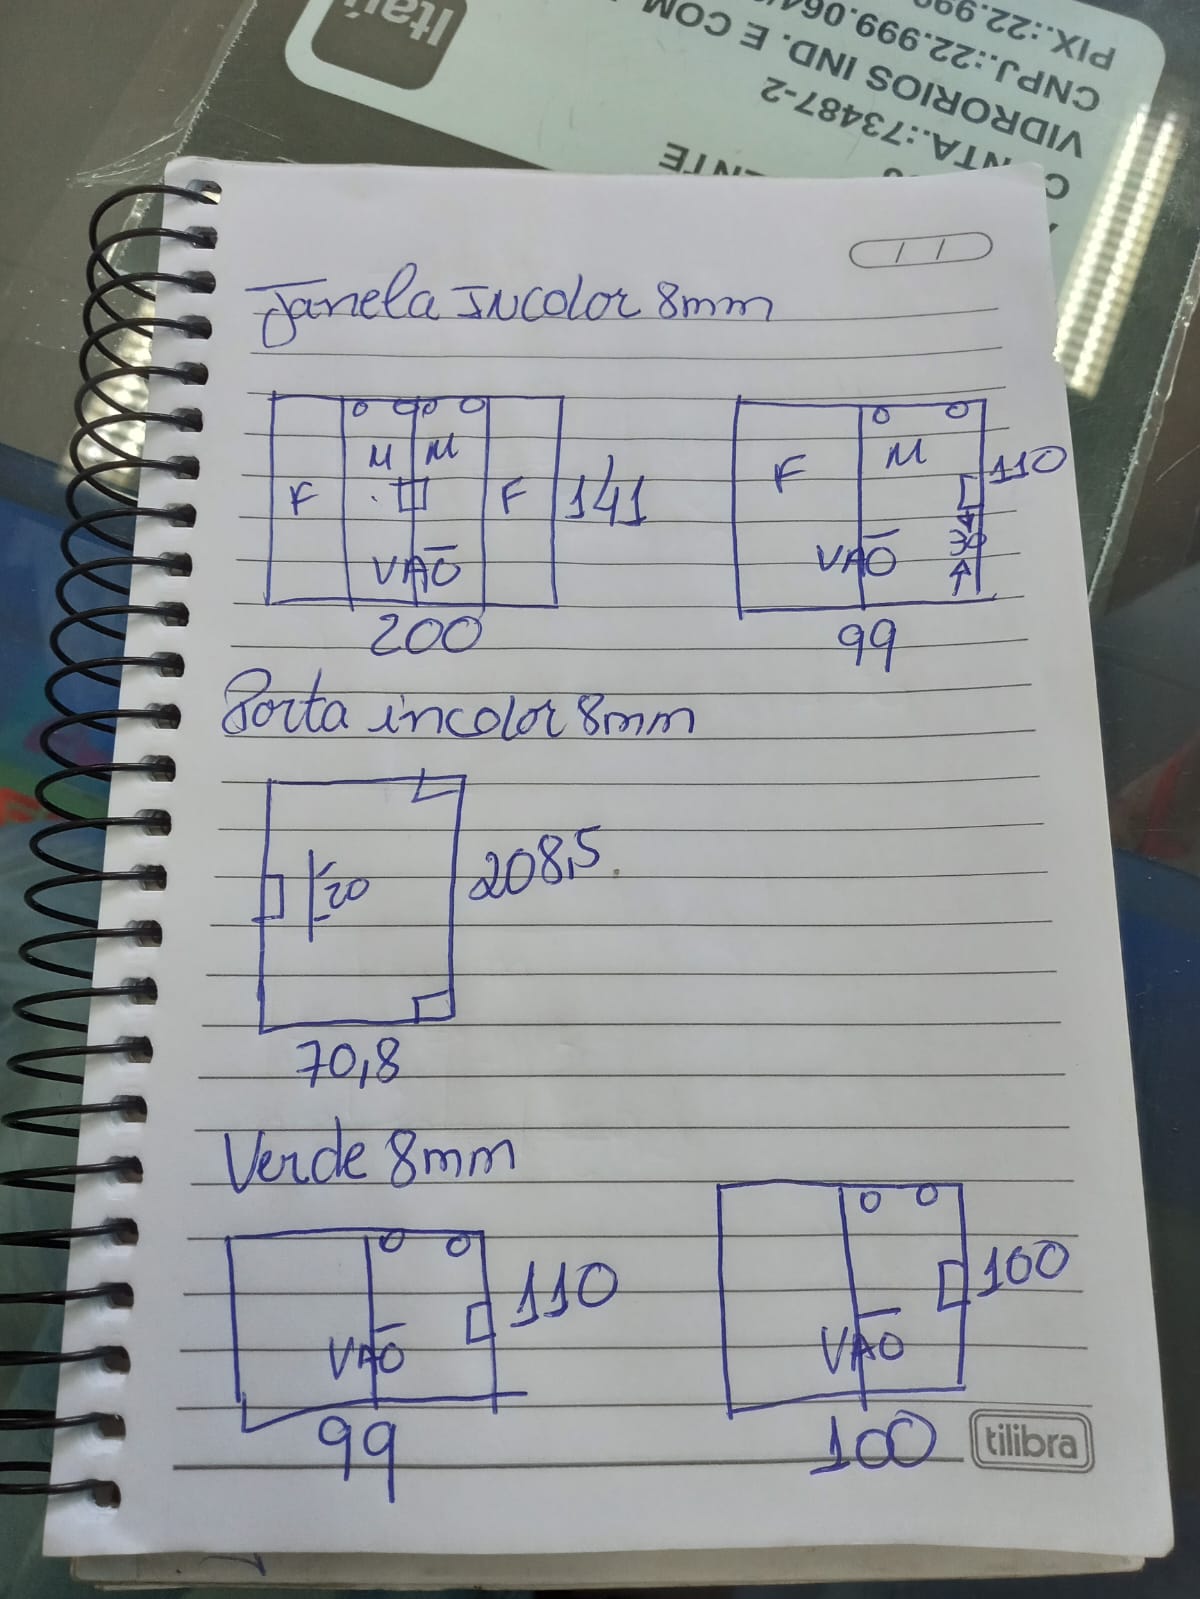 Itaú
PIX.:22.99
CNPJ.:22.999.064
VIDRORIOS IND. E COM
NTA.:73487-2
ENTE
Janela INcolor 8mm
F M M F 141
VAO
200
F M 110
30
VAO
99
Porta incolor 8mm
20 208,5
70,8
Verde 8mm
110
VAO
99
100
VAO
100
tilibra